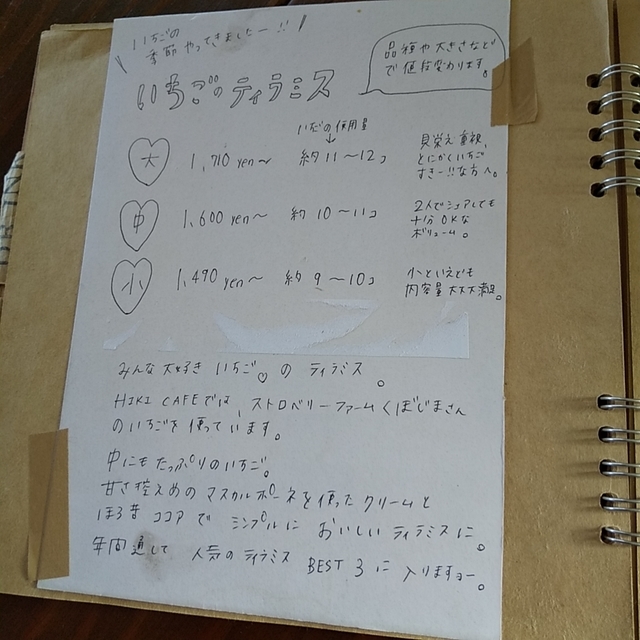 いちごの
季節やってきましたー!!
品種や大きさなど
で値段変わります。
いちごのティラミス
いちごの使用量
大 1,710 yen〜 約11〜12コ
見栄え重視、
とにかくいちご
すきー!!な方へ。
中 1,600 yen〜 約10〜11コ
2人でシェアしても
十分OKな
ボリューム。
小 1,490 yen〜 約9〜10コ
小といえども
内容量大大大満足。
みんな大好きいちご♡のティラミス。
HIKI CAFEでは、ストロベリーファームくぼじまさん
のいちごを使っています。
中にもたっぷりのいちご。
甘さ控えめのマスカルポーネを使ったクリームと
ほろ苦ココアでシンプルにおいしいティラミスに。
年間通して人気のティラミスBEST3に入りますョー。